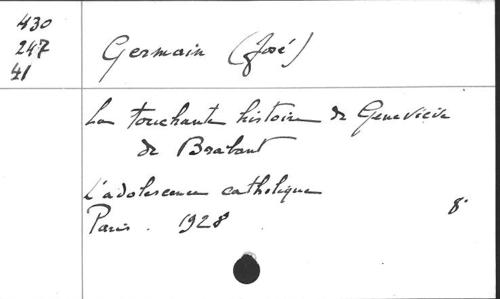 430
247
41
Germain (José)
La touchante histoire de Geneviève
de Brabant
L'adolescence catholique
Paris. 1928
8°